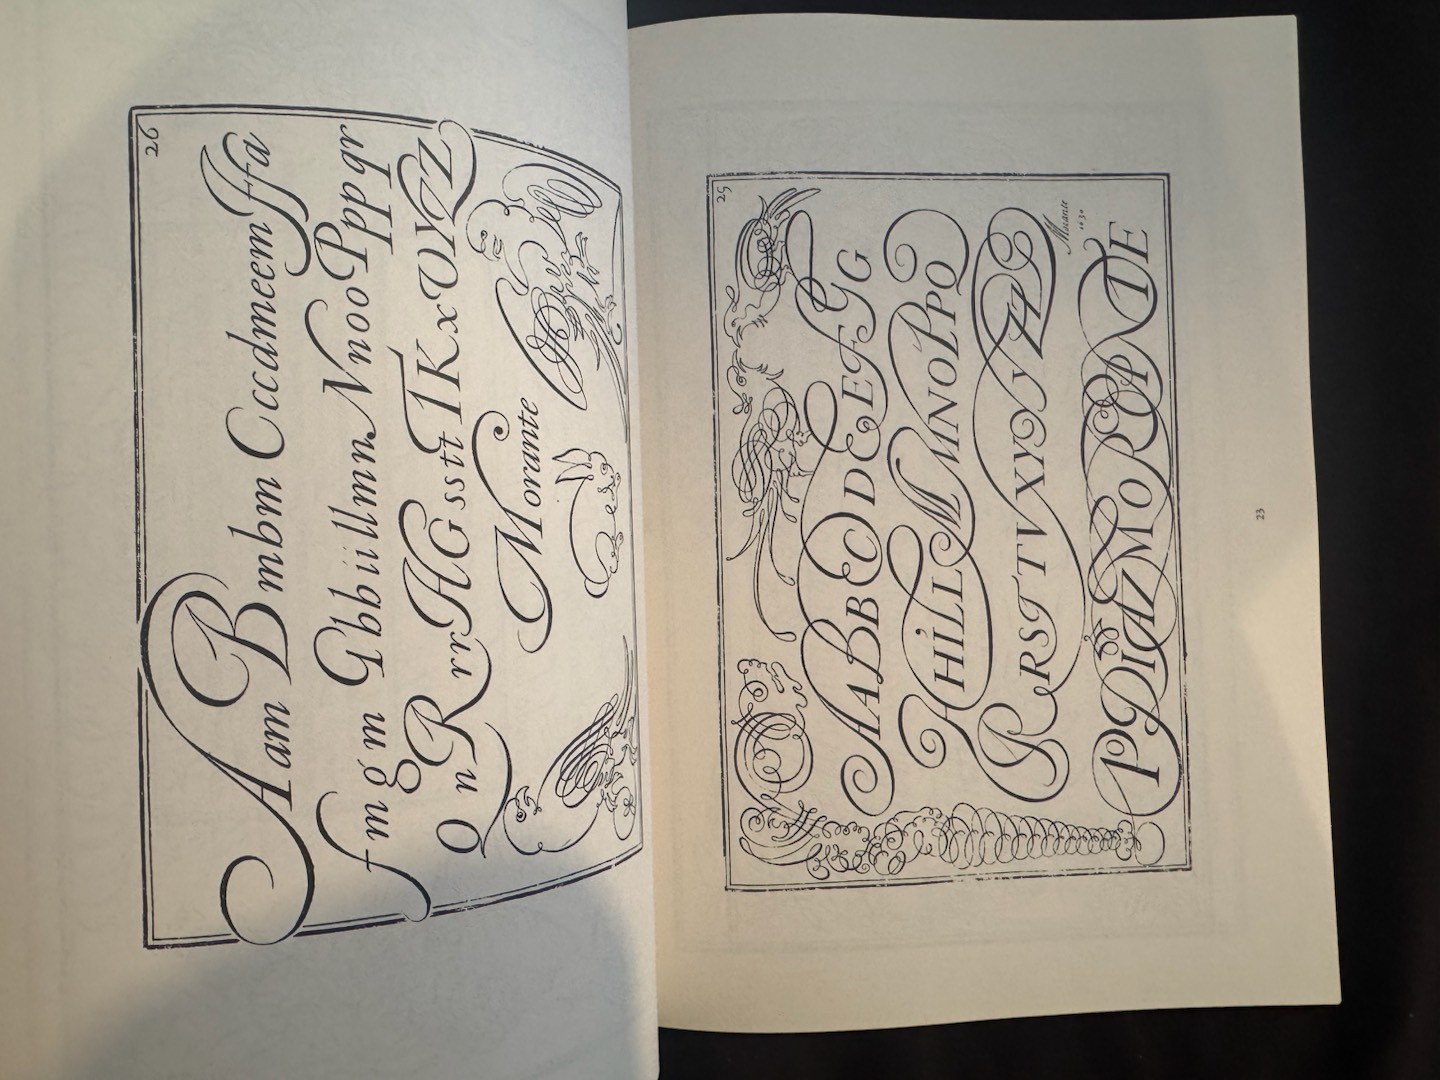 26
Aam Bmbm Cccdmeemffa
fmgm Gbbiillmn. NnooPppqr
OnRrrHGssttTKxvvyZ
Morante
25
AABBCDCEFGG
HHILLMMNOPPQ
RRSTTVXYYZ
Morante
1630
PºDiAZMORANTE
23